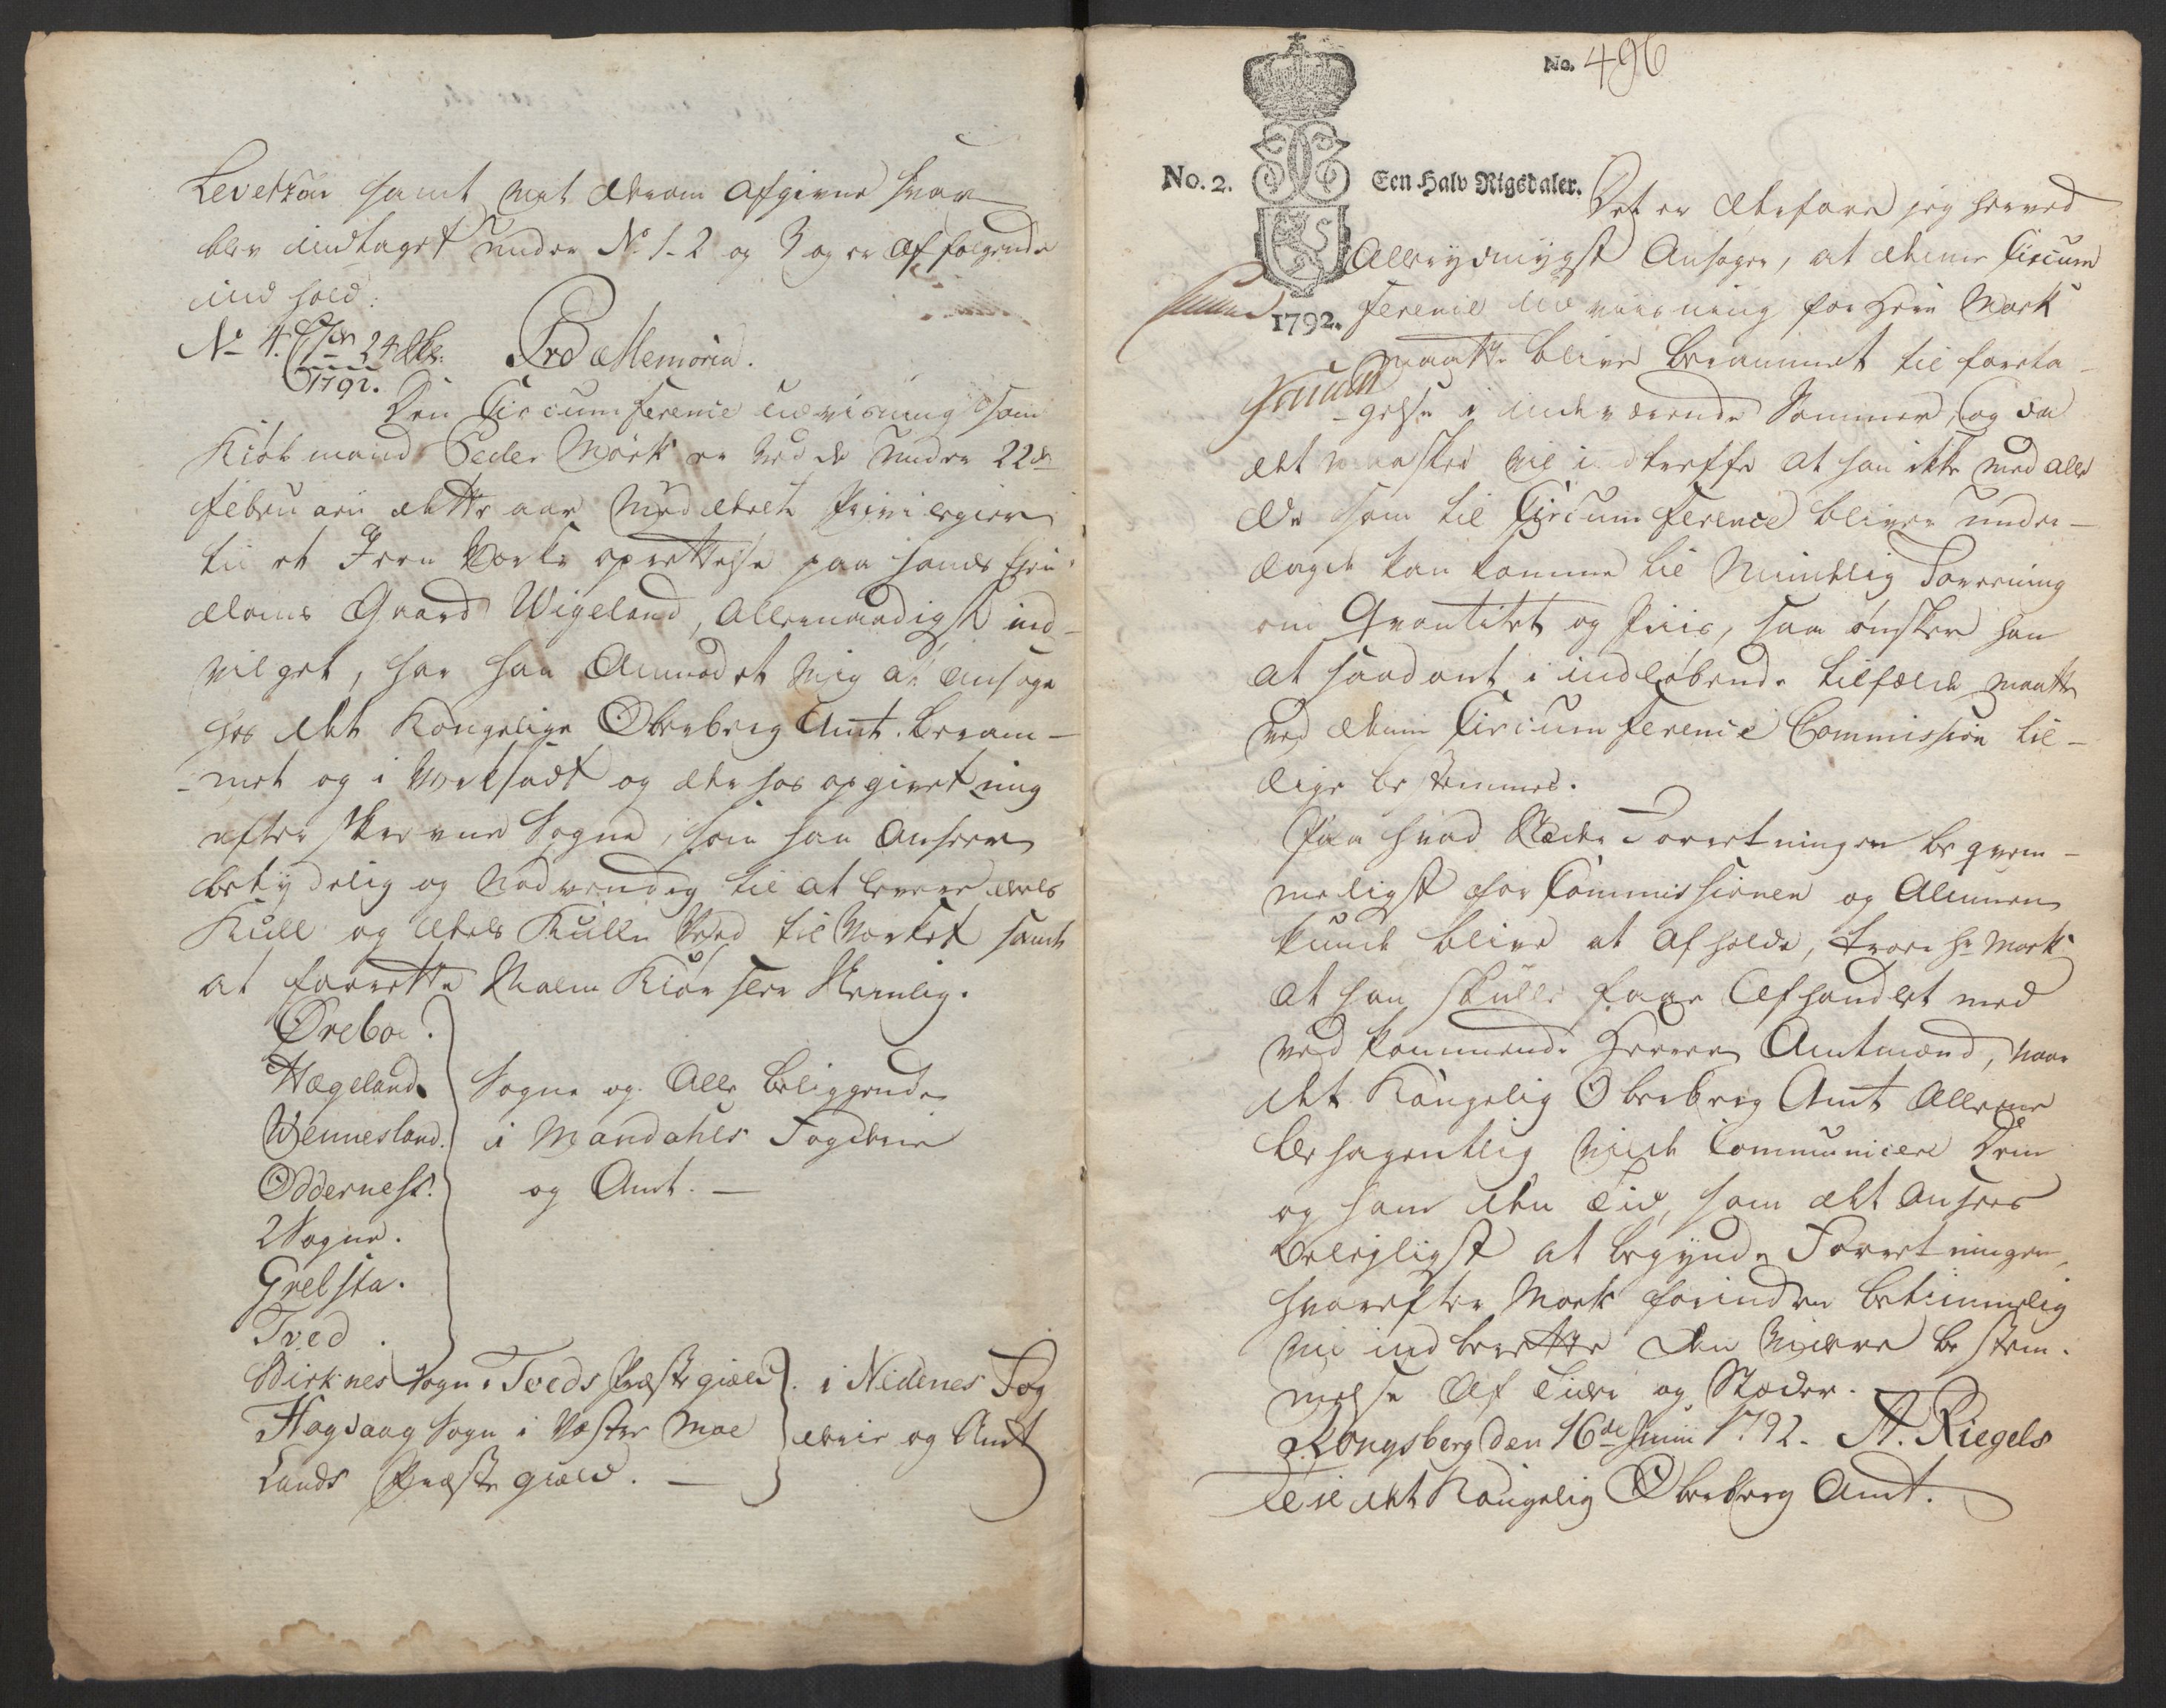 Levetzau samt mit derom afgivne svar
blev indtaget under No 1-2 og 3 og er af følgende
ind hold:
No 4. 24 Skr. 1792. Pro Memoria.
Den Circumference udviisning som
Kiøbmand Peder Mørk er ved de under 22de
Februarii dette aar meddeelte Privilegier
til et Jern Værks oprettelse paa hands Eien-
doms Gaard Wigeland, allernaadigst ind-
vilget, har han anmodet mig at ansøge
hos det Kongelige Oberberg Amt beram-
-met og i værksadt og der hos opgivet mig
efter skrevne Sogne, som han anseer
betydelig og nødvendig til at levere deels
Kull og deels Kulle Veed til Værket samt
at forrette Malm Kiørseler Nemlig.
Øreboe.
Hægeland.
Wennesland.
Odderness.
2 Sogne.
Grelsta.
Tved.
Sogne og alle beliggende
i Mandahls Fogderie
og Amt. —
Birknes Sogn i Tveds Præste giæld
Hagdaag Sogn i Vester Moe
Lands Præste giæld. —
i Nedenes Fog
derie og Amt
No. 496
No. 2. Een Halv Rigsdaler.
1792.
Det er derfore jeg herved
allerydmygst ansøger, at denne Circum
ference udviisning for Herr Mørk
maatte blive berammet til foreta-
-gelse i indeværende Sommer, og da
det maaskee vil indtreffe at han ikke med alle
de som til Circumference bliver under-
lagde kan komme til Mindelig Forening
om Qvantitet og Priis, saa ønsker han
at saadant i indløbende tilfælde maatte
ved denne Circumference Commission til-
lige bestemmes.
Paa hvad Stæder Forretningen beqvem-
meligst for Commissionen og Almuen
kunde blive at afholde, troer Hr Mørk
at han skulle faae afhandlet med
vedkommende Herrer Amtmænd, naar
det Kongelig Oberberg Amt allerene
behagentlig vilde Communicere Dem
og ham den Tid, som det ansees
beleyligst at begynde Forretningen,
hvorefter Mørk forinden betimmelig
vil indberette den nærmere bestem-
melse af Tider og Stæder.
Kongsberg den 16de Junii 1792. A. Riegels
Til det Kongelig Oberberg Amt.